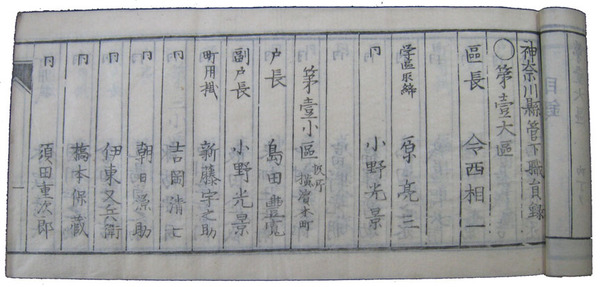 神奈川縣管下職員録
〇第壹大區
區長 今西相一
学區取締 原亮三
同 小野光景
第壹小區 役所横濱本町
戸長 島田豊寛
副戸長 小野光景
町用掛 新藤宇之助
同 吉岡清七
同 朝田彦助
同 伊東又兵衛
同 橋本保蔵
同 須田重次郎
目録